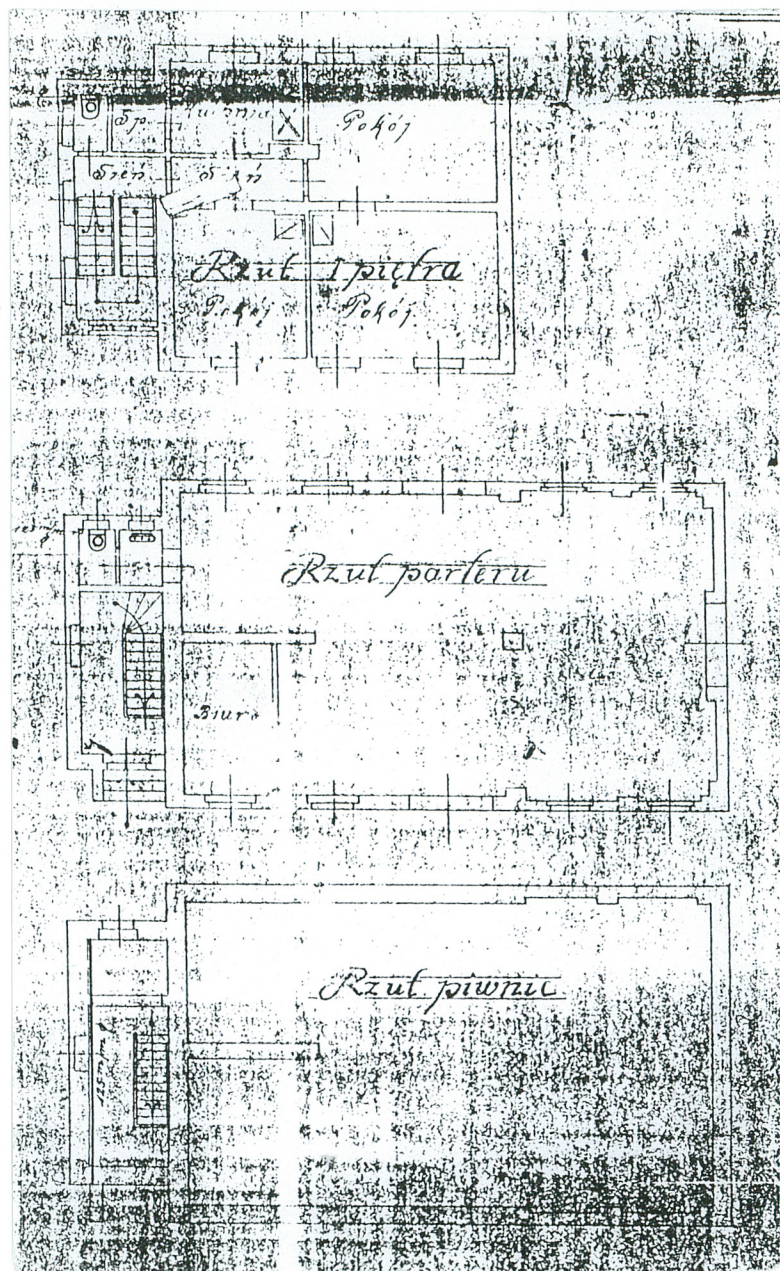 Sp.
Kuchnia
Pokój
Sień
Sień
Rzut I piętra
Pokój
Pokój
Rzut parteru
Biuro
Rzut piwnic